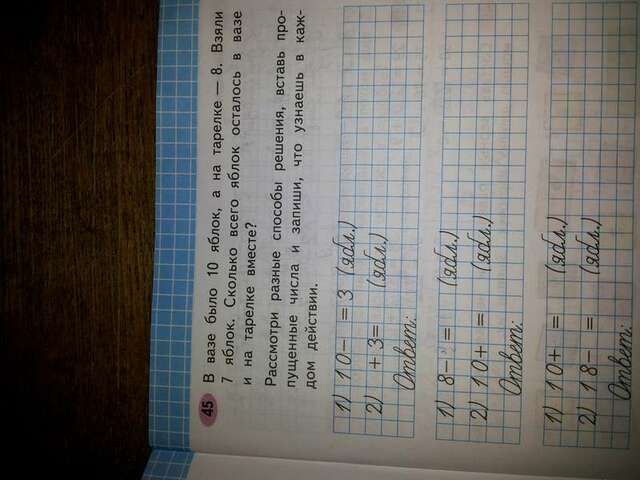 45 В вазе было 10 яблок, а на тарелке — 8. Взяли
7 яблок. Сколько всего яблок осталось в вазе
и на тарелке вместе?
Рассмотри разные способы решения, вставь про-
пущенные числа и запиши, что узнаешь в каж-
дом действии.
1) 10 – = 3 (ябл.)
2) + 3 = (ябл.)
Ответ:
1) 8 – = (ябл.)
2) 10 + = (ябл.)
Ответ:
1) 10 + = (ябл.)
2) 18 – = (ябл.)
Ответ: